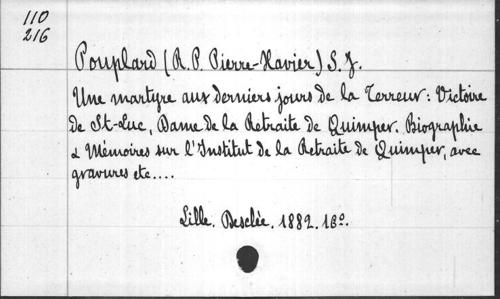 110
216
Pouplard (R. P. Pierre-Xavier) S. J.
Une martyre aux derniers jours de la Terreur: Victoire
de St-Luc, Dame de la Retraite de Quimper. Biographie
& Mémoires sur l'Institut de la Retraite de Quimper, avec
gravures etc....
Lille. Desclée. 1882. 16º.